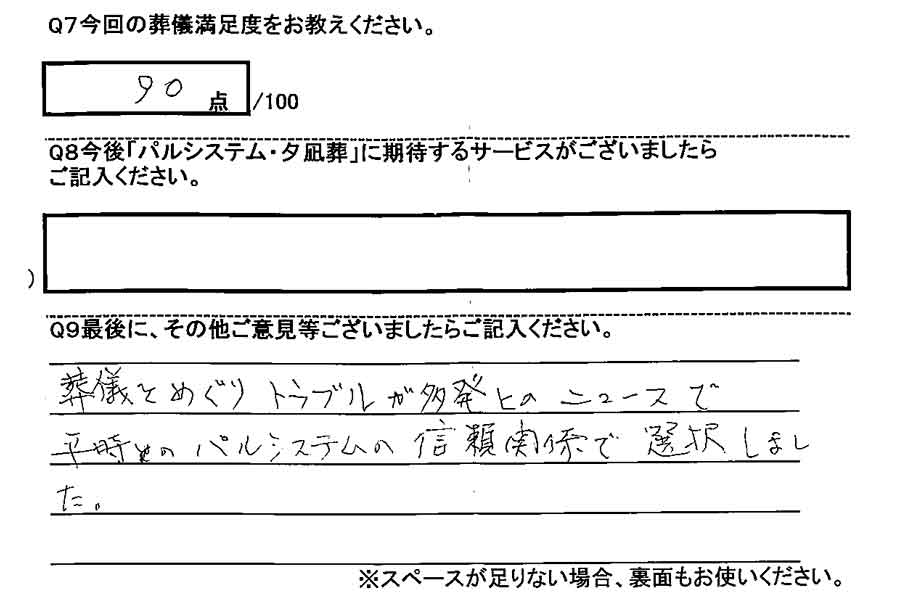 Q7今回の葬儀満足度をお教えください。
90 点 /100
Q8今後「パルシステム・夕凪葬」に期待するサービスがございましたら
ご記入ください。
)
Q9最後に、その他ご意見等ございましたらご記入ください。
葬儀をめぐりトラブルが多発とのニュースで
平時のパルシステムの信頼関係で選択しまし
た。
※スペースが足りない場合、裏面もお使いください。